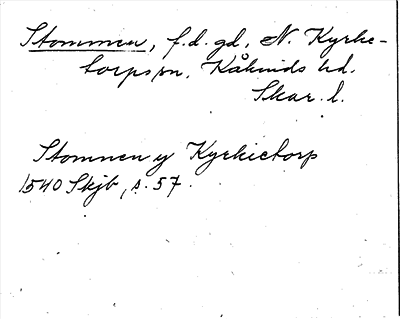 Stommen, f.d. gd, N. Kyrke-
torps sn, Kåkinds hd.
Skar. l.
Stomnen y Kyrkietorp
1540 Skjb, s. 57.